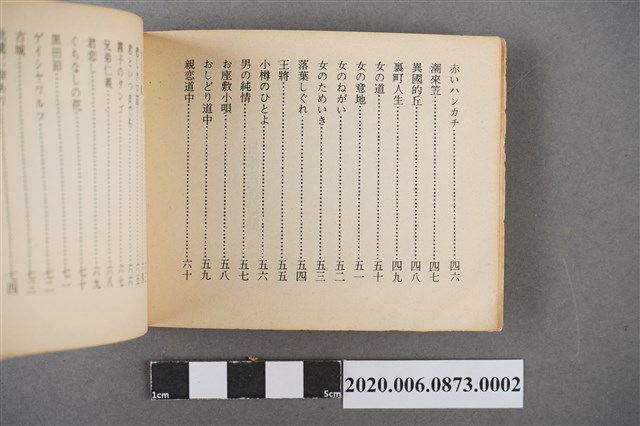 赤いハンカチ 四六
潮來笠 四七
異國的丘 四八
裏町人生 四九
女の道 五十
女の意地 五一
女のねがい 五二
女のためいき 五三
落葉しぐれ 五四
王將 五五
小樽のひとよ 五六
男の純情 五七
お座敷小唄 五八
おしどり道中 五九
親恋道中 六十
兄弟仁義 六八
君恋し 六九
くちなしの花 七十
黒田節 七一
ゲイシャワルツ 七二
古城 七三
1cm 5cm
2020.006.0873.0002